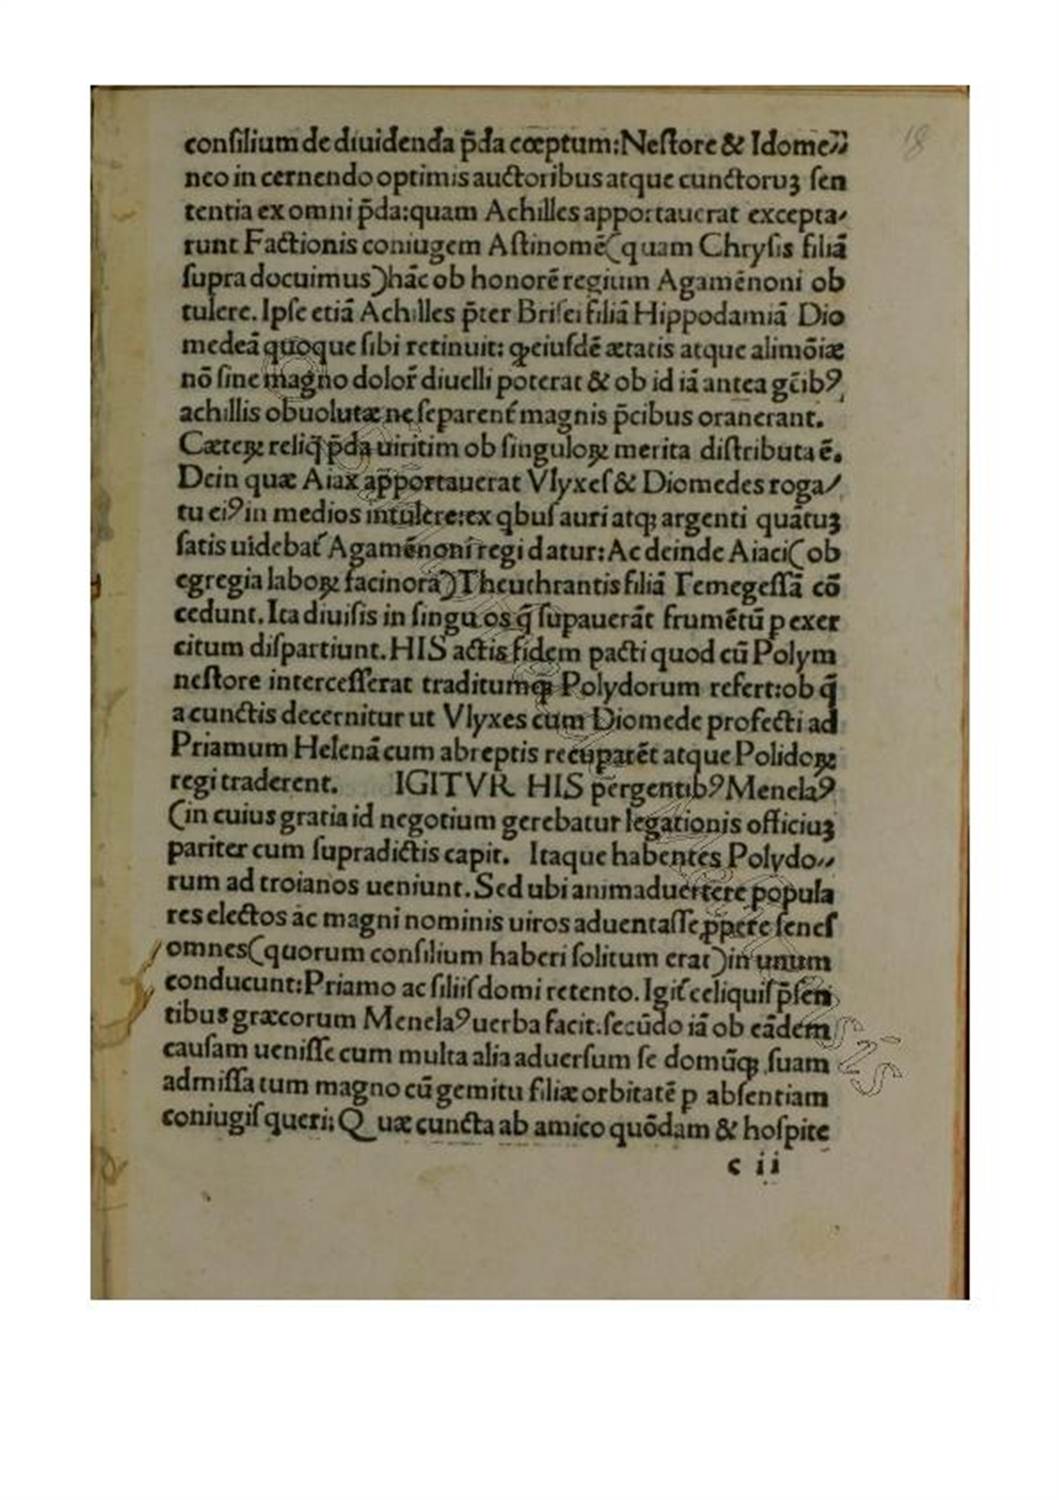 18
conſilium de diuidenda p̄da cœptum:Neſtore & Idome⸗
neo in cernendo optimis auctoribus atque cunctoruꝫ ſen
tentia ex omni p̄da:quam Achilles apportauerat excepta⸗
runt Factionis coniugem Aſtinomē(quam Chryſis filiā
ſupra docuimus)hāc ob honorē regium Agamēnoni ob
tulere. Ipſe etiā Achilles p̄ter Briſei filiā Hippodamiā Dio
medeā quoque ſibi retinuit: ꝙ eiuſdē ætatis atque alimōiæ
nō ſine magno dolor̄ diuelli poterat & ob id iā antea gēibꝰ
achillis obuolutæ ne ſeparent᷑ magnis p̄cibus oranerant.
Cæteꝝ reliq̄ p̄da uiritim ob ſinguloꝝ merita diſtributa ē.
Dein quæ Aiax app̄ortauerat Vlyxeſ & Diomedes roga⸗
tu eiꝰ in medios intulere:ex qbuſ auri atqꝫ argenti quātuꝫ
ſatis uidebat᷑ Agamēnoni regi datur: Ac deinde Aiaci(ob
egregia laboꝝ facinora)Theuthrantis filiā Temegeſſā cō
cedunt. Ita diuiſis in ſingu os q̄ ſupauerāt frumētū p exer
citum diſpartiunt. HIS actis fidem pacti quod cū Polym
neſtore interceſſerat traditumqꝫ Polydorum refert:ob q̄
a cunctis decernitur ut Vlyxes cum Diomede profecti ad
Priamum Helenā cum abreptis recuparēt atque Polidoꝝ
regi traderent. IGITVR HIS pergentibꝰ Menelaꝰ
(in cuius gratia id negotium gerebatur legationis officiuꝫ
pariter cum ſupradictis capit. Itaque habentes Polydo⸗
rum ad troianos ueniunt. Sed ubi animaduertere popula
res electos ac magni nominis uiros aduentaſſe ꝓpere ſeneſ
omnes(quorum conſilium haberi ſolitum erat)in unum
conducunt:Priamo ac filiiſ domi retento. Igit᷑ celiquiſ p̄ſen
tibus græcorum Menelaꝰ uerba facit.ſecūdo iā ob eādem
cauſam ueniſſe cum multa alia aduerſum ſe domūqꝫ ſuam
admiſſa tum magno cū gemitu filiæ orbitatē p abſentiam
coniugiſ queri; Quæ cuncta ab amico quōdam & hoſpite
c ii